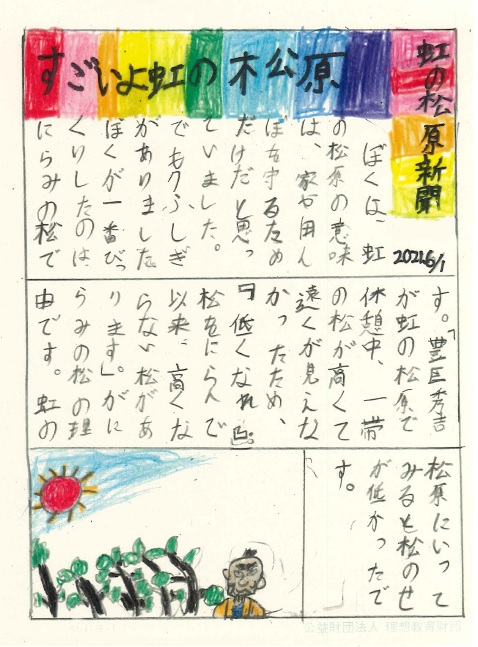 虹の松原新聞
2021.6/1
すごいよ虹の松原
ぼくは、虹
の松原の意味
は、家や田ん
ぼを守るため
だけだと思っ
ていました。
でも7ふしぎ
がありました
ぼくが一番びっ
くりしたのは、
にらみの松で
す。「豊臣秀吉
が虹の松原で
休憩中、一帯
の松が高くて
遠くが見えな
かったため、
『低くなれ』と
松をにらんで
以来、高くな
らない松があ
ります」。がに
らみの松の理
由です。虹の
松原にいって
みると松のせ
が低かったで
す。
公益財団法人 理想教育財団